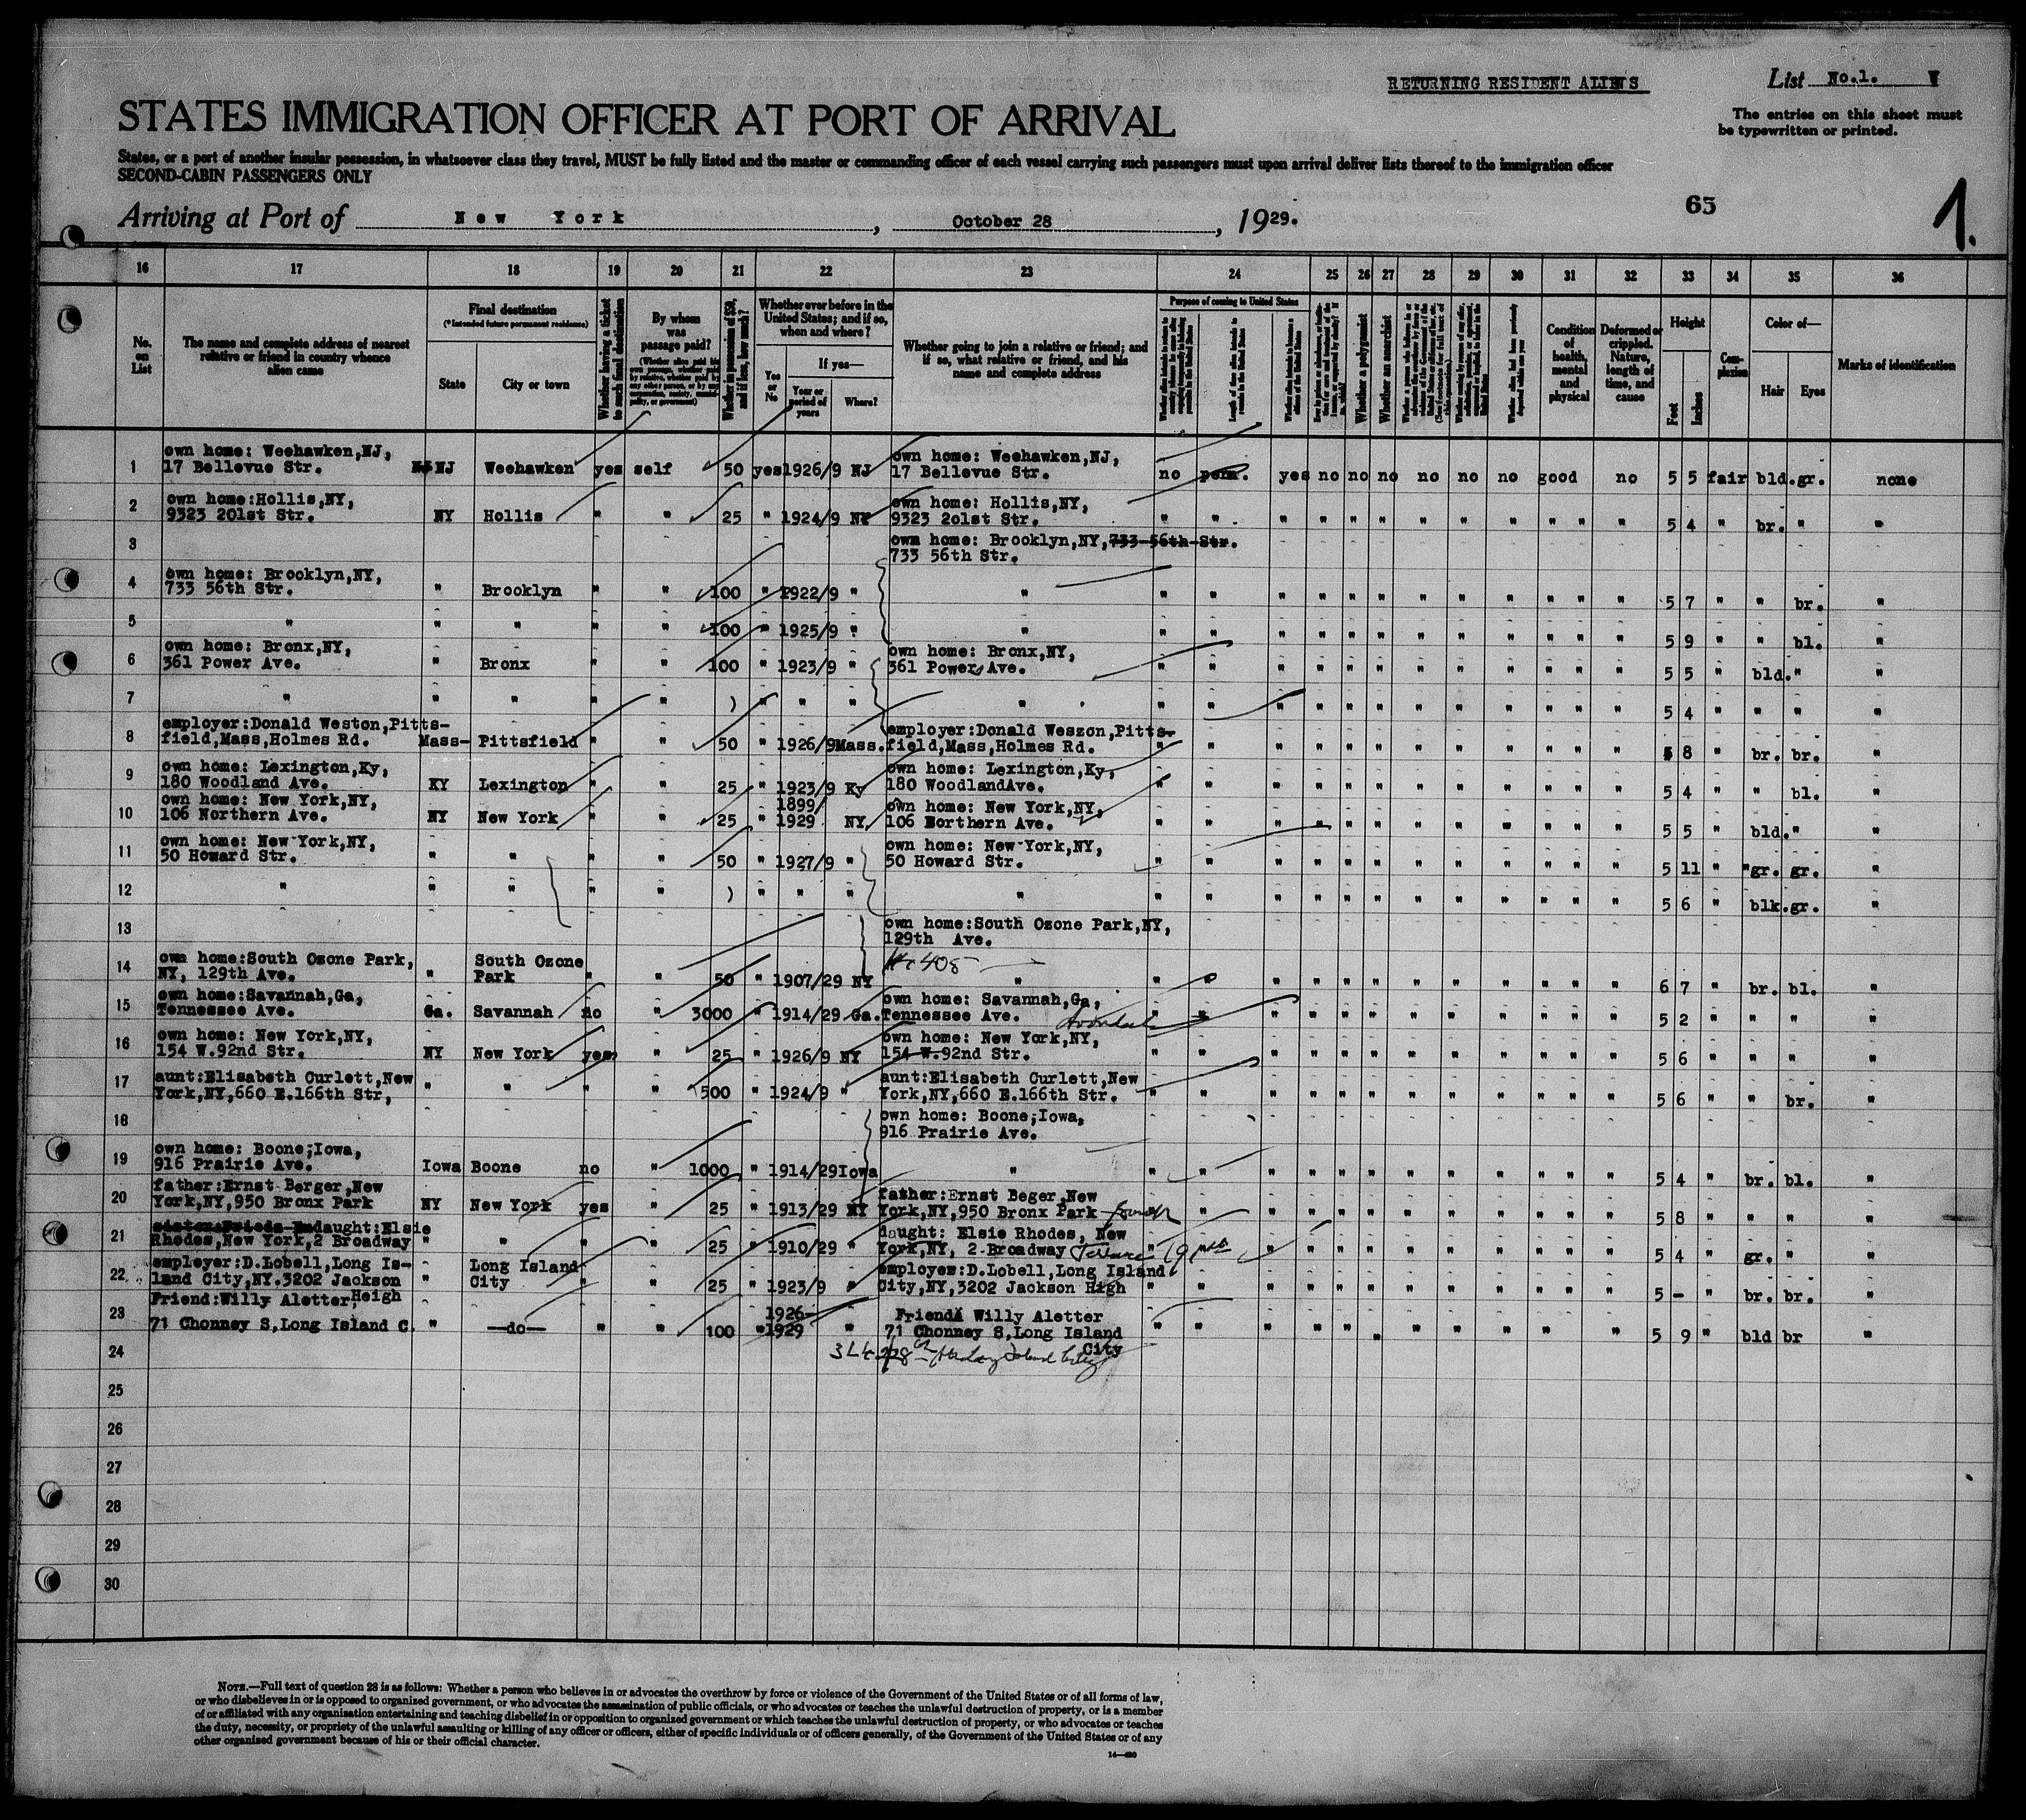 RETURNING RESIDENT ALIENS
List No.1.
The entries on this sheet must
be typewritten or printed.
STATES IMMIGRATION OFFICER AT PORT OF ARRIVAL
States, or a port of another insular possession, in whatsoever class they travel, MUST be fully listed and the master or commanding officer of each vessel carrying such passengers must upon arrival deliver lists thereof to the immigration officer
SECOND-CABIN PASSENGERS ONLY
65
1.
Arriving at Port of New York, October 28, 1929.
16 17 18 19 20 21 22 23 24 25 26 27 28 29 30 31 32 33 34 35 36
No. on List
The name and complete address of nearest relative or friend in country whence alien came
Final destination
(*Intended future permanent residence)
State
City or town
Whether having a ticket to such final destination
By whom was passage paid?
Whether in possession of $50, and if less, how much?
Whether ever before in the United States; and if so, when and where?
Yes or No
If yes—
Year or period of years
Where?
Whether going to join a relative or friend; and if so, what relative or friend, and his name and complete address
Purpose of coming to United States
Whether a polygamist
Whether an anarchist
Condition of health, mental and physical
Deformed or crippled. Nature, length of time, and cause
Height
Feet
Inches
Complexion
Color of—
Hair
Eyes
Marks of identification
1 own home: Weehawken,NJ, 17 Bellevue Str. NJ Weehawken yes self 50 yes 1926/9 NJ own home: Weehawken,NJ, 17 Bellevue Str. no perm. yes no no no no no no good no 5 5 fair bld. gr. none
2 own home:Hollis,NY, 9323 201st Str. NY Hollis " " 25 " 1924/9 NY own home: Hollis,NY, 9323 201st Str. " " " " " " " " " " " " 5 4 " br. " "
3 own home: Brooklyn,NY,733 56th Str. 733 56th Str.
4 own home: Brooklyn,NY, 733 56th Str. " Brooklyn " " 100 " 1922/9 " " " " " " " " " " " " " " 5 7 " " br. "
5 " " " " " 100 " 1925/9 " " " " " " " " " " " " " " 5 9 " " bl. "
6 own home: Bronx,NY, 361 Power Ave. " Bronx " " 100 " 1923/9 " own home: Bronx,NY, 361 Power Ave. " " " " " " " " " " " " 5 5 " bld. " "
7 " " " " " ) " " " " " " " " " " " " " " " " 5 4 " " " "
8 employer:Donald Weston,Pittsfield,Mass,Holmes Rd. Mass- Pittsfield " " 50 " 1926/9 Mass. employer:Donald Weszon,Pittsfield,Mass,Holmes Rd. " " " " " " " " " " " " 5 8 " br. br. "
9 own home: Lexington,Ky, 180 Woodland Ave. KY Lexington " " 25 " 1923/9 Ky own home: Lexington,Ky, 180 WoodlandAve. " " " " " " " " " " " " 5 4 " " bl. "
10 own home: New York,NY, 106 Northern Ave. NY New York " " 25 " 1899/1929 NY, own home: New York,NY, 106 Northern Ave. " " " " " " " " " " " " 5 5 " bld. " "
11 own home: New York,NY, 50 Howard Str. " " " " 50 " 1927/9 " own home: New York,NY, 50 Howard Str. " " " " " " " " " " " " 5 11 " "gr. gr. "
12 " " " " " ) " " " " " " " " " " " " " " " " 5 6 " blk. gr. "
13 own home:South Ozone Park,NY, 129th Ave.
14 own home:South Ozone Park, NY, 129th Ave. " South Ozone Park " " 50 " 1907/29 NY " " " " " " " " " " " " " 6 7 " br. bl. "
15 own home:Savannah,Ga, Tennessee Ave. Ga. Savannah no " 3000 " 1914/29 Ga. own home: Savannah,Ga, Tennessee Ave. Avondale " " " " " " " " " " " " 5 2 " " " "
16 own home: New York,NY, 154 W.92nd Str. NY New York yes " 25 " 1926/9 NY own home: New York,NY, 154 W.92nd Str. " " " " " " " " " " " " 5 6 " " " "
17 aunt:Elisabeth Curlett,New York,NY,660 E.166th Str, " " " " 500 " 1924/9 " aunt:Elisabeth Curlett,New York,NY,660 E.166th Str. " " " " " " " " " " " " 5 6 " " br. "
18 own home: Boone;Iowa, 916 Prairie Ave.
19 own home: Boone;Iowa, 916 Prairie Ave. Iowa Boone no " 1000 " 1914/29 Iowa " " " " " " " " " " " " " 5 4 " br. bl. "
20 father:Ernst Berger,New York,NY,950 Bronx Park NY New York yes " 25 " 1913/29 NY father:Ernst Beger,New York,NY,950 Bronx Park " " " " " " " " " " " " 5 8 " " " "
21 daught:Elsie Rhodes,New York,2 Broadway " " " " 25 " 1910/29 " daught: Elsie Rhodes, New York,NY, 2 Broadway Terrace " " " " " " " " " " " 5 4 " gr. " "
22 employer:D.Lobell,Long Island City,NY.3202 Jackson Heigh " Long Island City " " 25 " 1923/9 " employer:D.Lobell,Long Island City,NY,3202 Jackson High " " " " " " " " " " " " 5 - " br. br. "
23 Friend:Willy Aletter, 71 Chonney S,Long Island C. " —do— " " 100 " 1926-1929 " Friend: Willy Aletter 71 Chonney S,Long Island City " " " " " " " " " " " " 5 9 " bld br "
24
25
26
27
28
29
30
NOTE.—Full text of question 28 is as follows: Whether a person who believes in or advocates the overthrow by force or violence of the Government of the United States or of all forms of law,
or who disbelieves in or is opposed to organized government, or who advocates the assassination of public officials, or who advocates or teaches the unlawful destruction of property, or is a member
of or affiliated with any organization entertaining and teaching disbelief in or opposition to organized government or which teaches the unlawful destruction of property, or who advocates or teaches
the duty, necessity, or propriety of the unlawful assaulting or killing of any officer or officers, either of specific individuals or of officers generally, of the Government of the United States or of any
other organized government because of his or their official character.
14—480